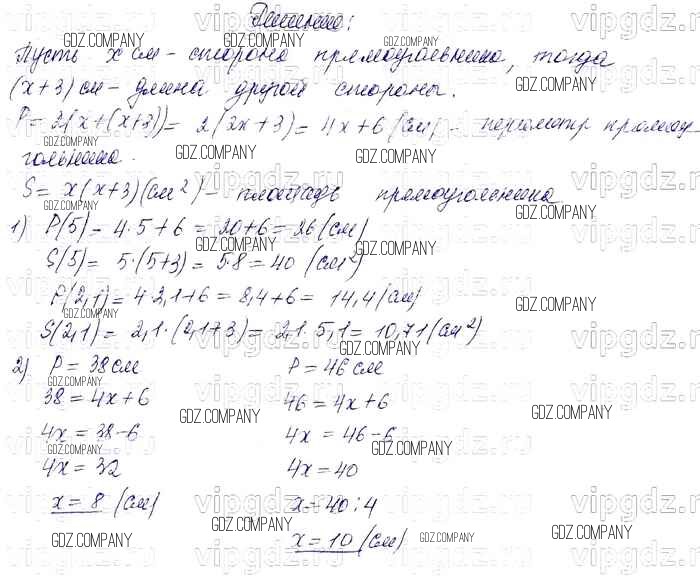 Решение:
Пусть x см - сторона прямоугольника, тогда
(x+3) см - длина другой стороны.
P = 2(x+(x+3)) = 2(2x+3) = 4x+6 (см) - периметр прямоу-
гольника.
S = x(x+3)(см²) - площадь прямоугольника
1) P(5) = 4·5+6 = 20+6 = 26 (см)
S(5) = 5·(5+3) = 5·8 = 40 (см²)
P(2,1) = 4·2,1+6 = 8,4+6 = 14,4 (см)
S(2,1) = 2,1·(2,1+3) = 2,1·5,1 = 10,71 (см²)
2) P = 38 см P = 46 см
38 = 4x+6 46 = 4x+6
4x = 38-6 4x = 46-6
4x = 32 4x = 40
x = 8 (см) x = 40:4
x = 10 (см)
GDZ.COMPANY
vipgdz.ru